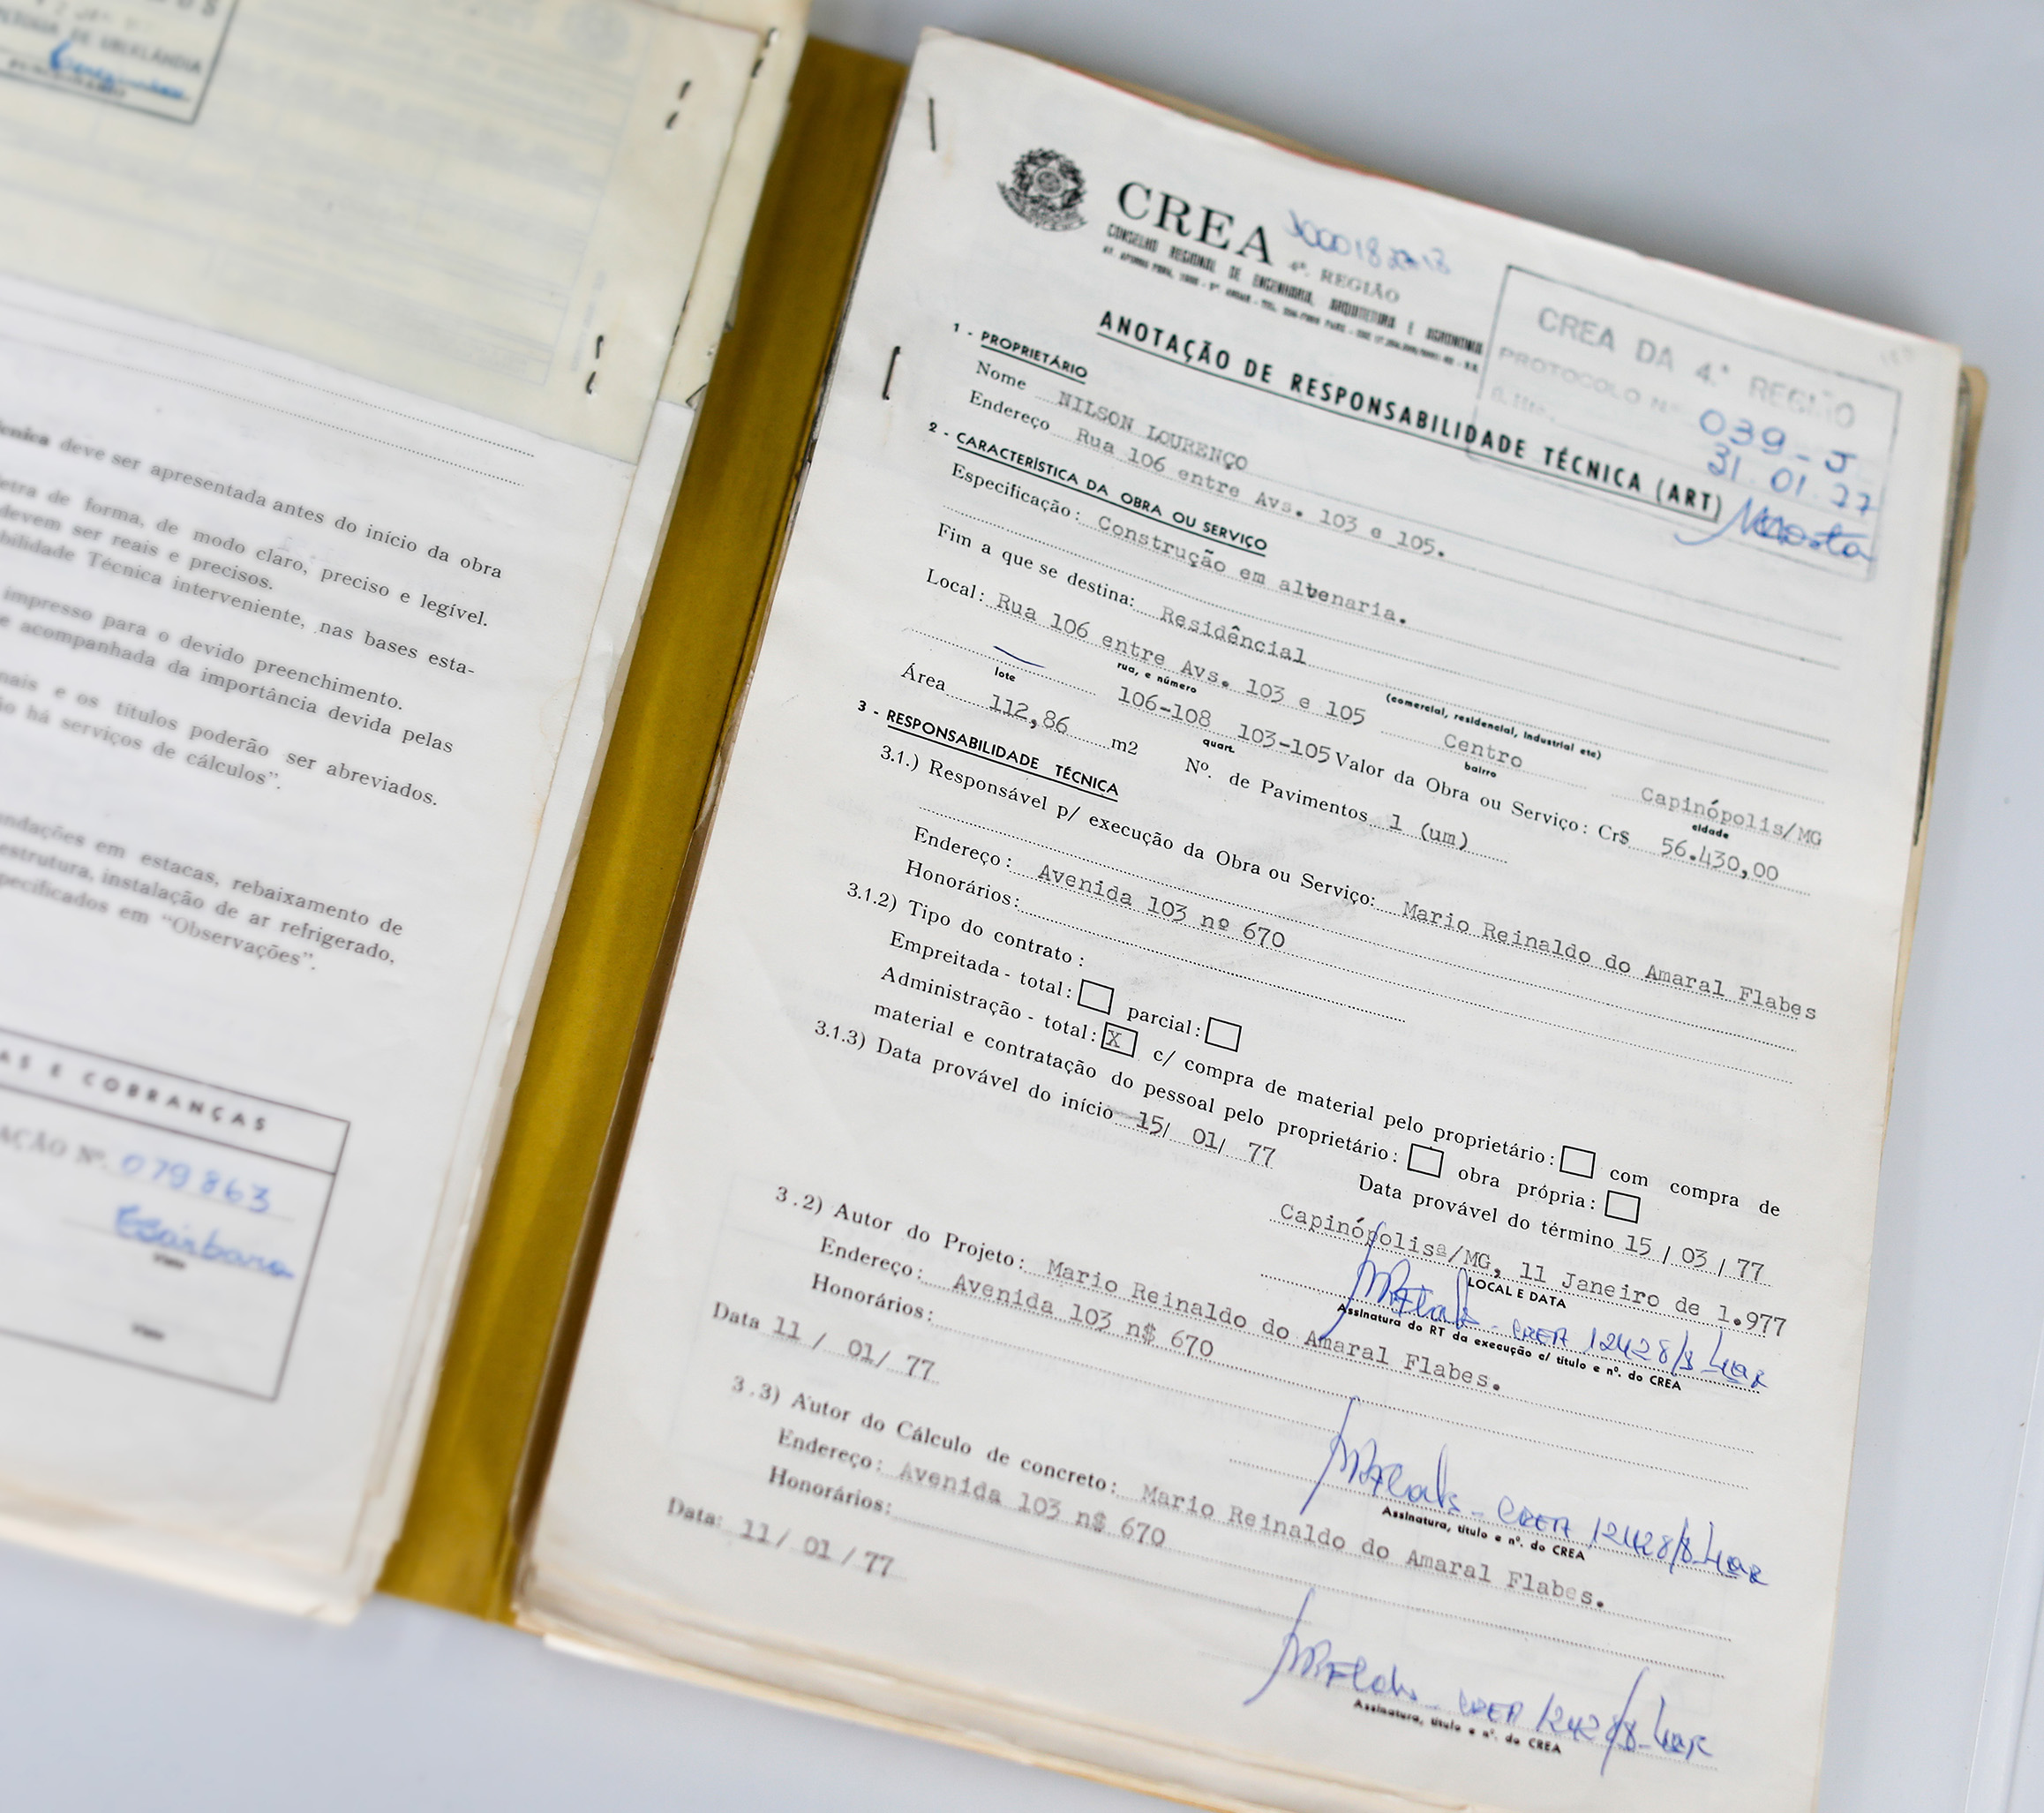 DE UBERLÂNDIA
deve ser apresentada antes do início da obra
letra de forma, de modo claro, preciso e legível.
devem ser reais e precisos.
bilidade Técnica interveniente, nas bases esta-
impresso para o devido preenchimento.
e acompanhada da importância devida pelas
nais e os títulos poderão ser abreviados.
ão há serviços de cálculos".
ndações em estacas, rebaixamento de
estrutura, instalação de ar refrigerado,
pecificados em "Observações".
AS E COBRANÇAS
AÇÃO Nº. 079863
Visto
Visto
CREA
4ª. REGIÃO
CONSELHO REGIONAL DE ENGENHARIA, ARQUITETURA E AGRONOMIA
CREA DA 4.ª REGIÃO
PROTOCOLO Nº 039-J
31.01.77
ANOTAÇÃO DE RESPONSABILIDADE TÉCNICA (ART)
1 - PROPRIETÁRIO
Nome NILSON LOURENÇO
Endereço Rua 106 entre Avs. 103 e 105.
2 - CARACTERÍSTICA DA OBRA OU SERVIÇO
Especificação: Construção em alvenaria.
Fim a que se destina: Residêncial
(comercial, residencial, industrial etc)
Local: Rua 106 entre Avs. 103 e 105 Centro Capinópolis/MG
rua, e número bairro cidade
106-108 103-105
lote quart.
Valor da Obra ou Serviço: Cr$ 56.430,00
Área 112,86 m2 Nº. de Pavimentos 1 (um)
3 - RESPONSABILIDADE TÉCNICA
3.1.) Responsável p/ execução da Obra ou Serviço: Mario Reinaldo do Amaral Flabes
Endereço: Avenida 103 nº 670
Honorários:
3.1.2) Tipo do contrato:
Empreitada - total: parcial:
Administração - total: X c/ compra de material pelo proprietário: com compra de
material e contratação do pessoal pelo proprietário: obra própria:
3.1.3) Data provável do início 15/ 01/ 77 Data provável do término 15 / 03 / 77
Capinópolisª/MG, 11 Janeiro de 1.977
LOCAL E DATA
CREA 12428/8
Assinatura do RT da execução c/ título e nº. do CREA
3.2) Autor do Projeto: Mario Reinaldo do Amaral Flabes.
Endereço: Avenida 103 n$ 670
Honorários:
Data 11 / 01/ 77
CREA 12428/8
Assinatura, título e nº. do CREA
3.3) Autor do Cálculo de concreto: Mario Reinaldo do Amaral Flabes.
Endereço: Avenida 103 n$ 670
Honorários:
Data: 11/ 01 / 77
CREA 12428/8
Assinatura, título e nº. do CREA